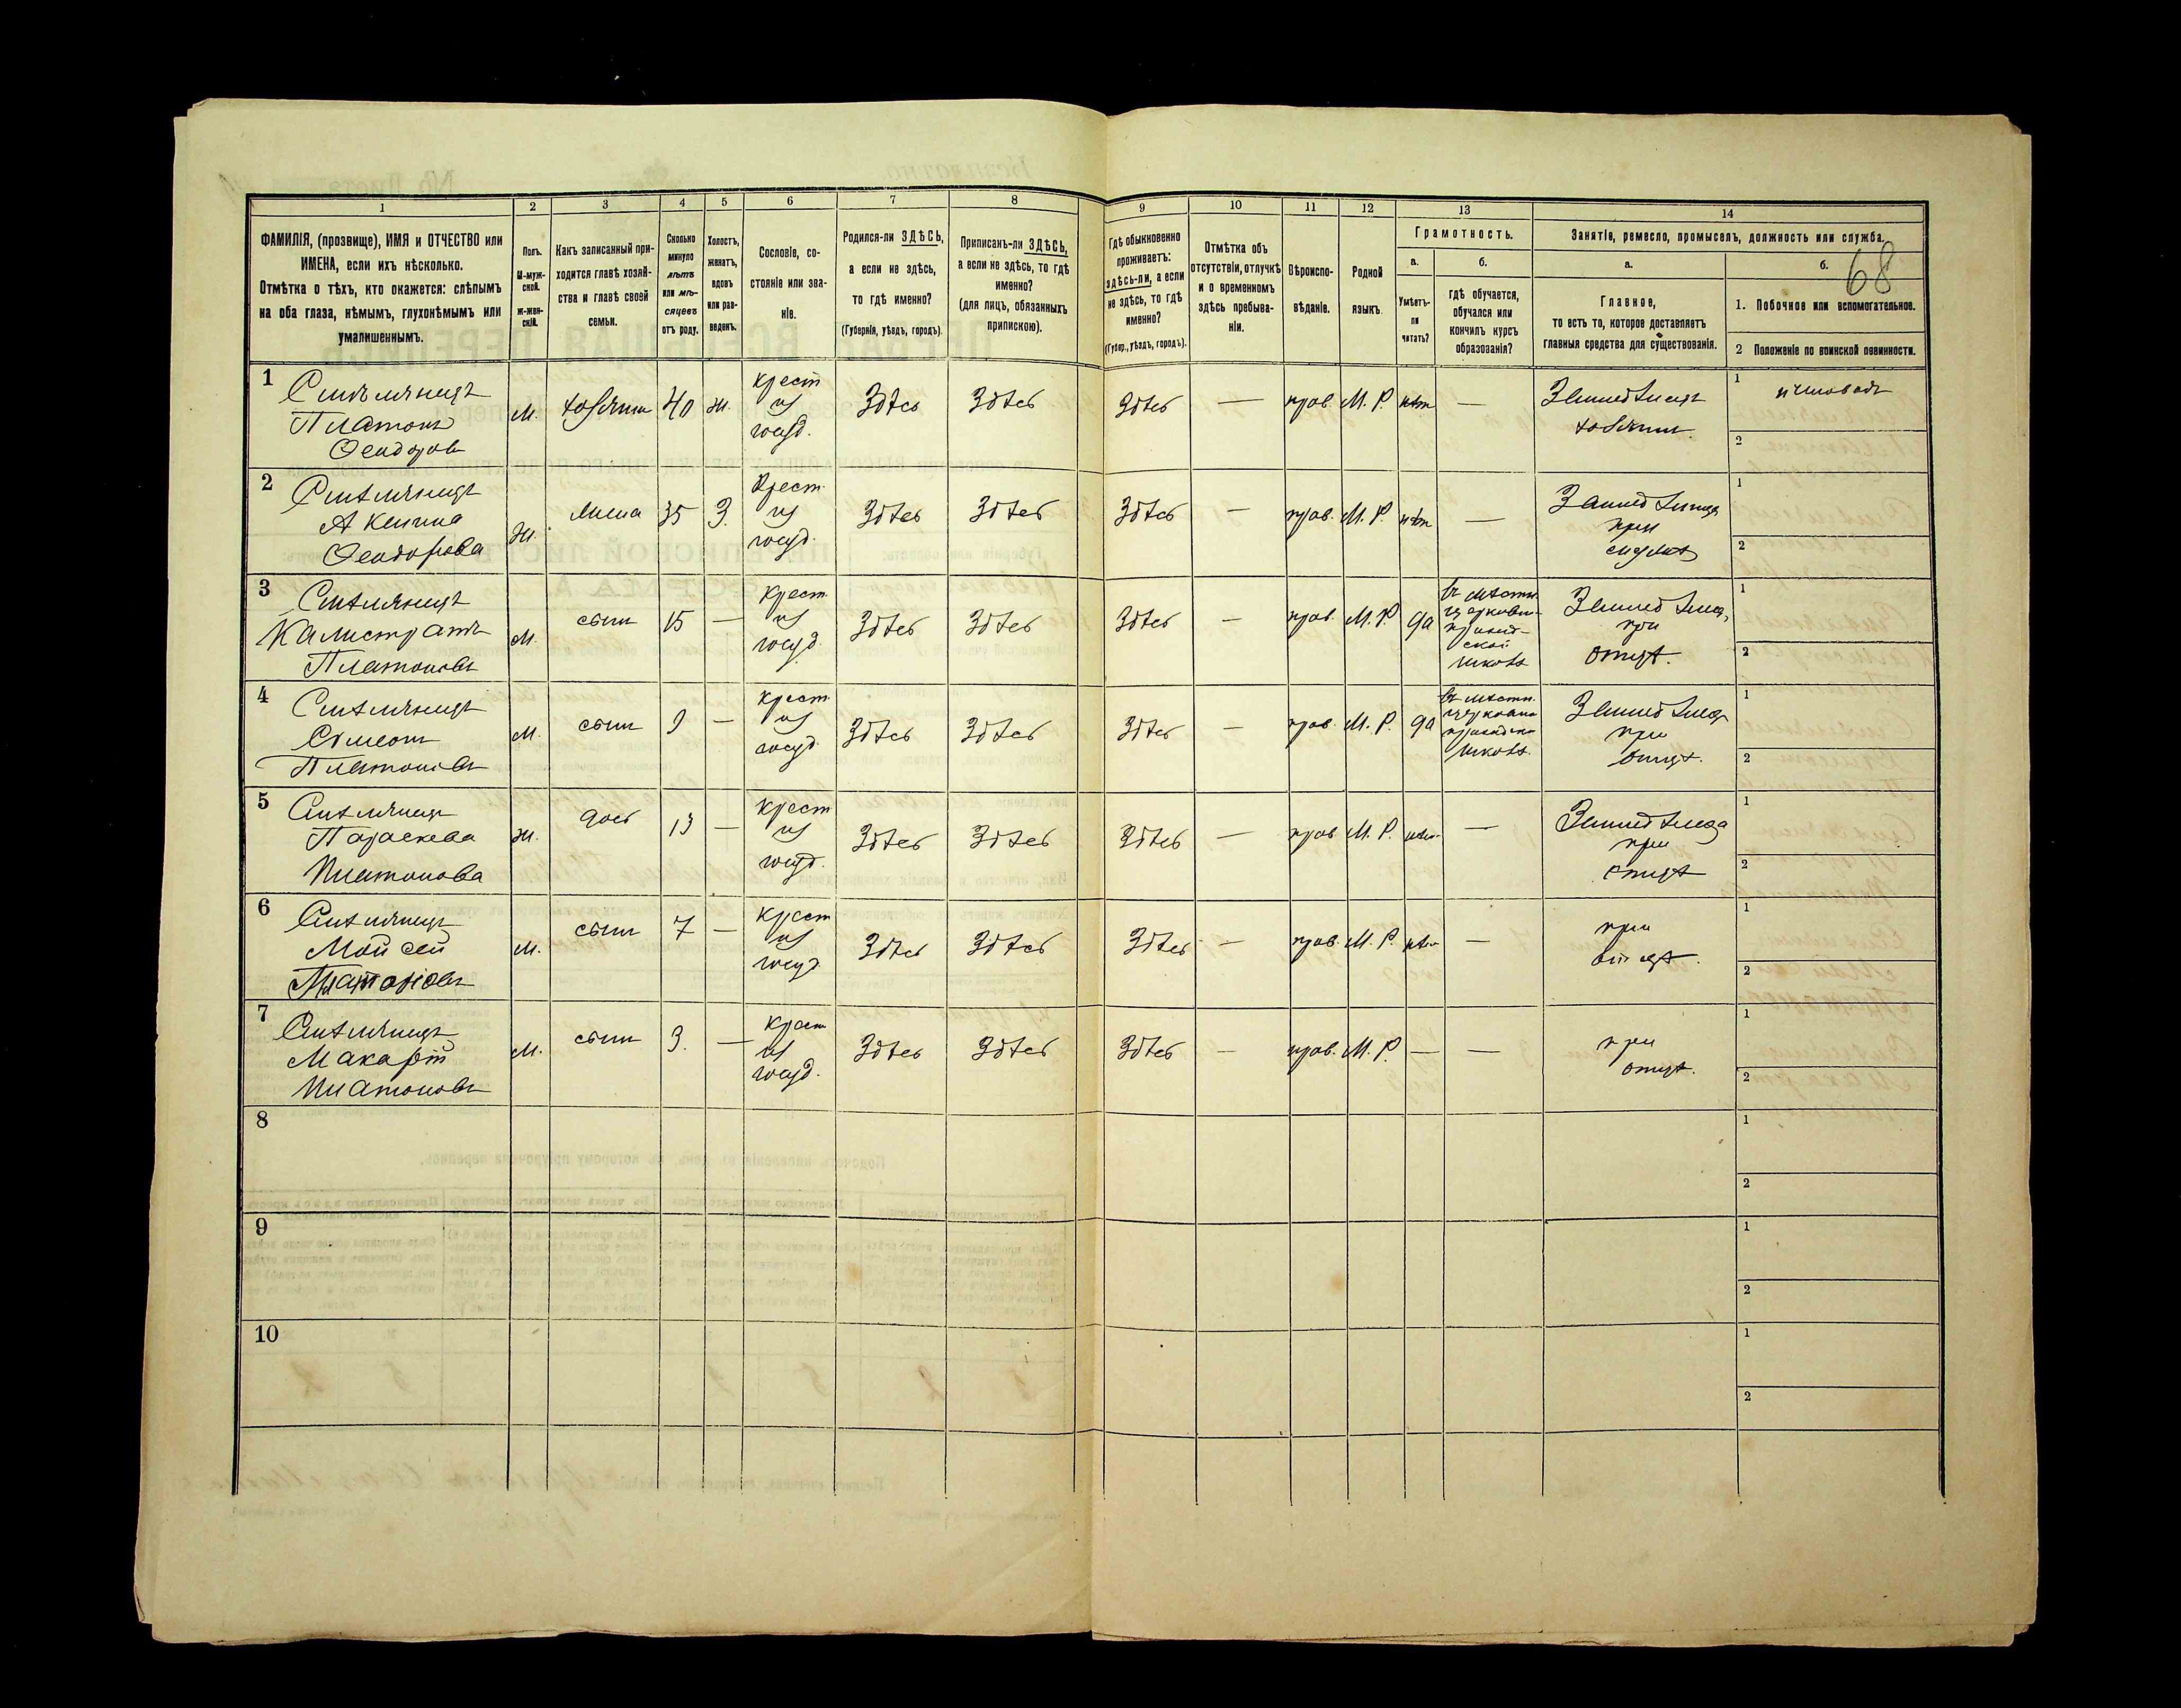 68
1 2 3 4 5 6 7 8 9 10 11 12 13 14
ФАМИЛІЯ, (прозвище), ИМЯ и ОТЧЕСТВО или
ИМЕНА, если ихъ нѣсколько.
Отмѣтка о тѣхъ, кто окажется: слѣпымъ
на оба глаза, нѣмымъ, глухонѣмымъ или
умалишеннымъ.
Полъ.
М-муж-
ской.
Ж-жен-
скій.
Какъ записанный при-
ходится главѣ хозяй-
ства и главѣ своей
семьи.
Сколько
минуло
лѣтъ
или мѣ-
сяцевъ
отъ роду.
Холостъ,
женатъ,
вдовъ
или раз-
веденъ.
Сословіе, со-
стояніе или зва-
ніе.
Родился-ли ЗДѢСЬ,
а если не здѣсь,
то гдѣ именно?
(Губернія, уѣздъ, городъ).
Приписанъ-ли ЗДѢСЬ,
а если не здѣсь, то гдѣ
именно?
(для лицъ, обязанныхъ
припискою).
Гдѣ обыкновенно
проживаетъ:
здѣсь-ли, а если
не здѣсь, то гдѣ
именно?
(Губер., уѣздъ, городъ).
Отмѣтка объ
отсутствіи, отлучкѣ
и о временномъ
здѣсь пребыва-
ніи.
Вѣроиспо-
вѣданіе.
Родной
языкъ.
Грамотность.
а.
Умѣетъ-
ли
читать?
б.
гдѣ обучается,
обучался или
кончилъ курсъ
образованія?
Занятіе, ремесло, промыселъ, должность или служба.
а.
Главное,
то есть то, которое доставляетъ
главныя средства для существованія.
б.
1. Побочное или вспомогательное.
2 Положеніе по воинской повинности.
1
Платонъ
Ѳеодоровъ
М. хозяинъ 40 ж.
крест
из
госуд.
Здѣсь Здѣсь Здѣсь — прав. М. Р. нѣт —
Земледѣлецъ
хозяинъ.
1 пчеловодъ
2
2
Ѳеодорова
Ж. жена 35 З.
Крест.
из
госуд.
Здѣсь Здѣсь Здѣсь — прав. М. Р. нѣт —
при
1
2
3
Калистратъ
Платоновъ
М. сынъ 15 —
крест.
из
госуд.
Здѣсь Здѣсь Здѣсь — прав. М. Р да
въ мѣстн.
церковн-
приход-
ской
школѣ
при
отцѣ.
1
2
4
Симеонъ
Платоновъ
М. сынъ 9 —
крест.
из
госуд.
Здѣсь Здѣсь Здѣсь — прав. М. Р. да
въ мѣстн.
церковно
приходско
школѣ.
при
отцѣ.
1
2
5
Параскева
Платонова
Ж. дочь 13 —
крест
из
госуд.
Здѣсь Здѣсь Здѣсь — прав М. Р. нѣт. —
при
отцѣ
1
2
6
Мойсей
Платоновъ
М. сынъ 7 —
крест
из
госуд
Здѣсь Здѣсь Здѣсь — прав. М. Р. нѣт —
при
отцѣ.
1
2
7
Макарій
Платоновъ
М. сынъ 3. —
крест
из
госуд.
Здѣсь Здѣсь Здѣсь — прав. М. Р. — —
при
отцѣ.
1
2
8
1
2
9
1
2
10
1
2